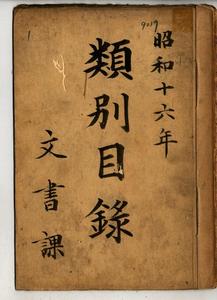 昭和十六年
類別目錄
文書課
1